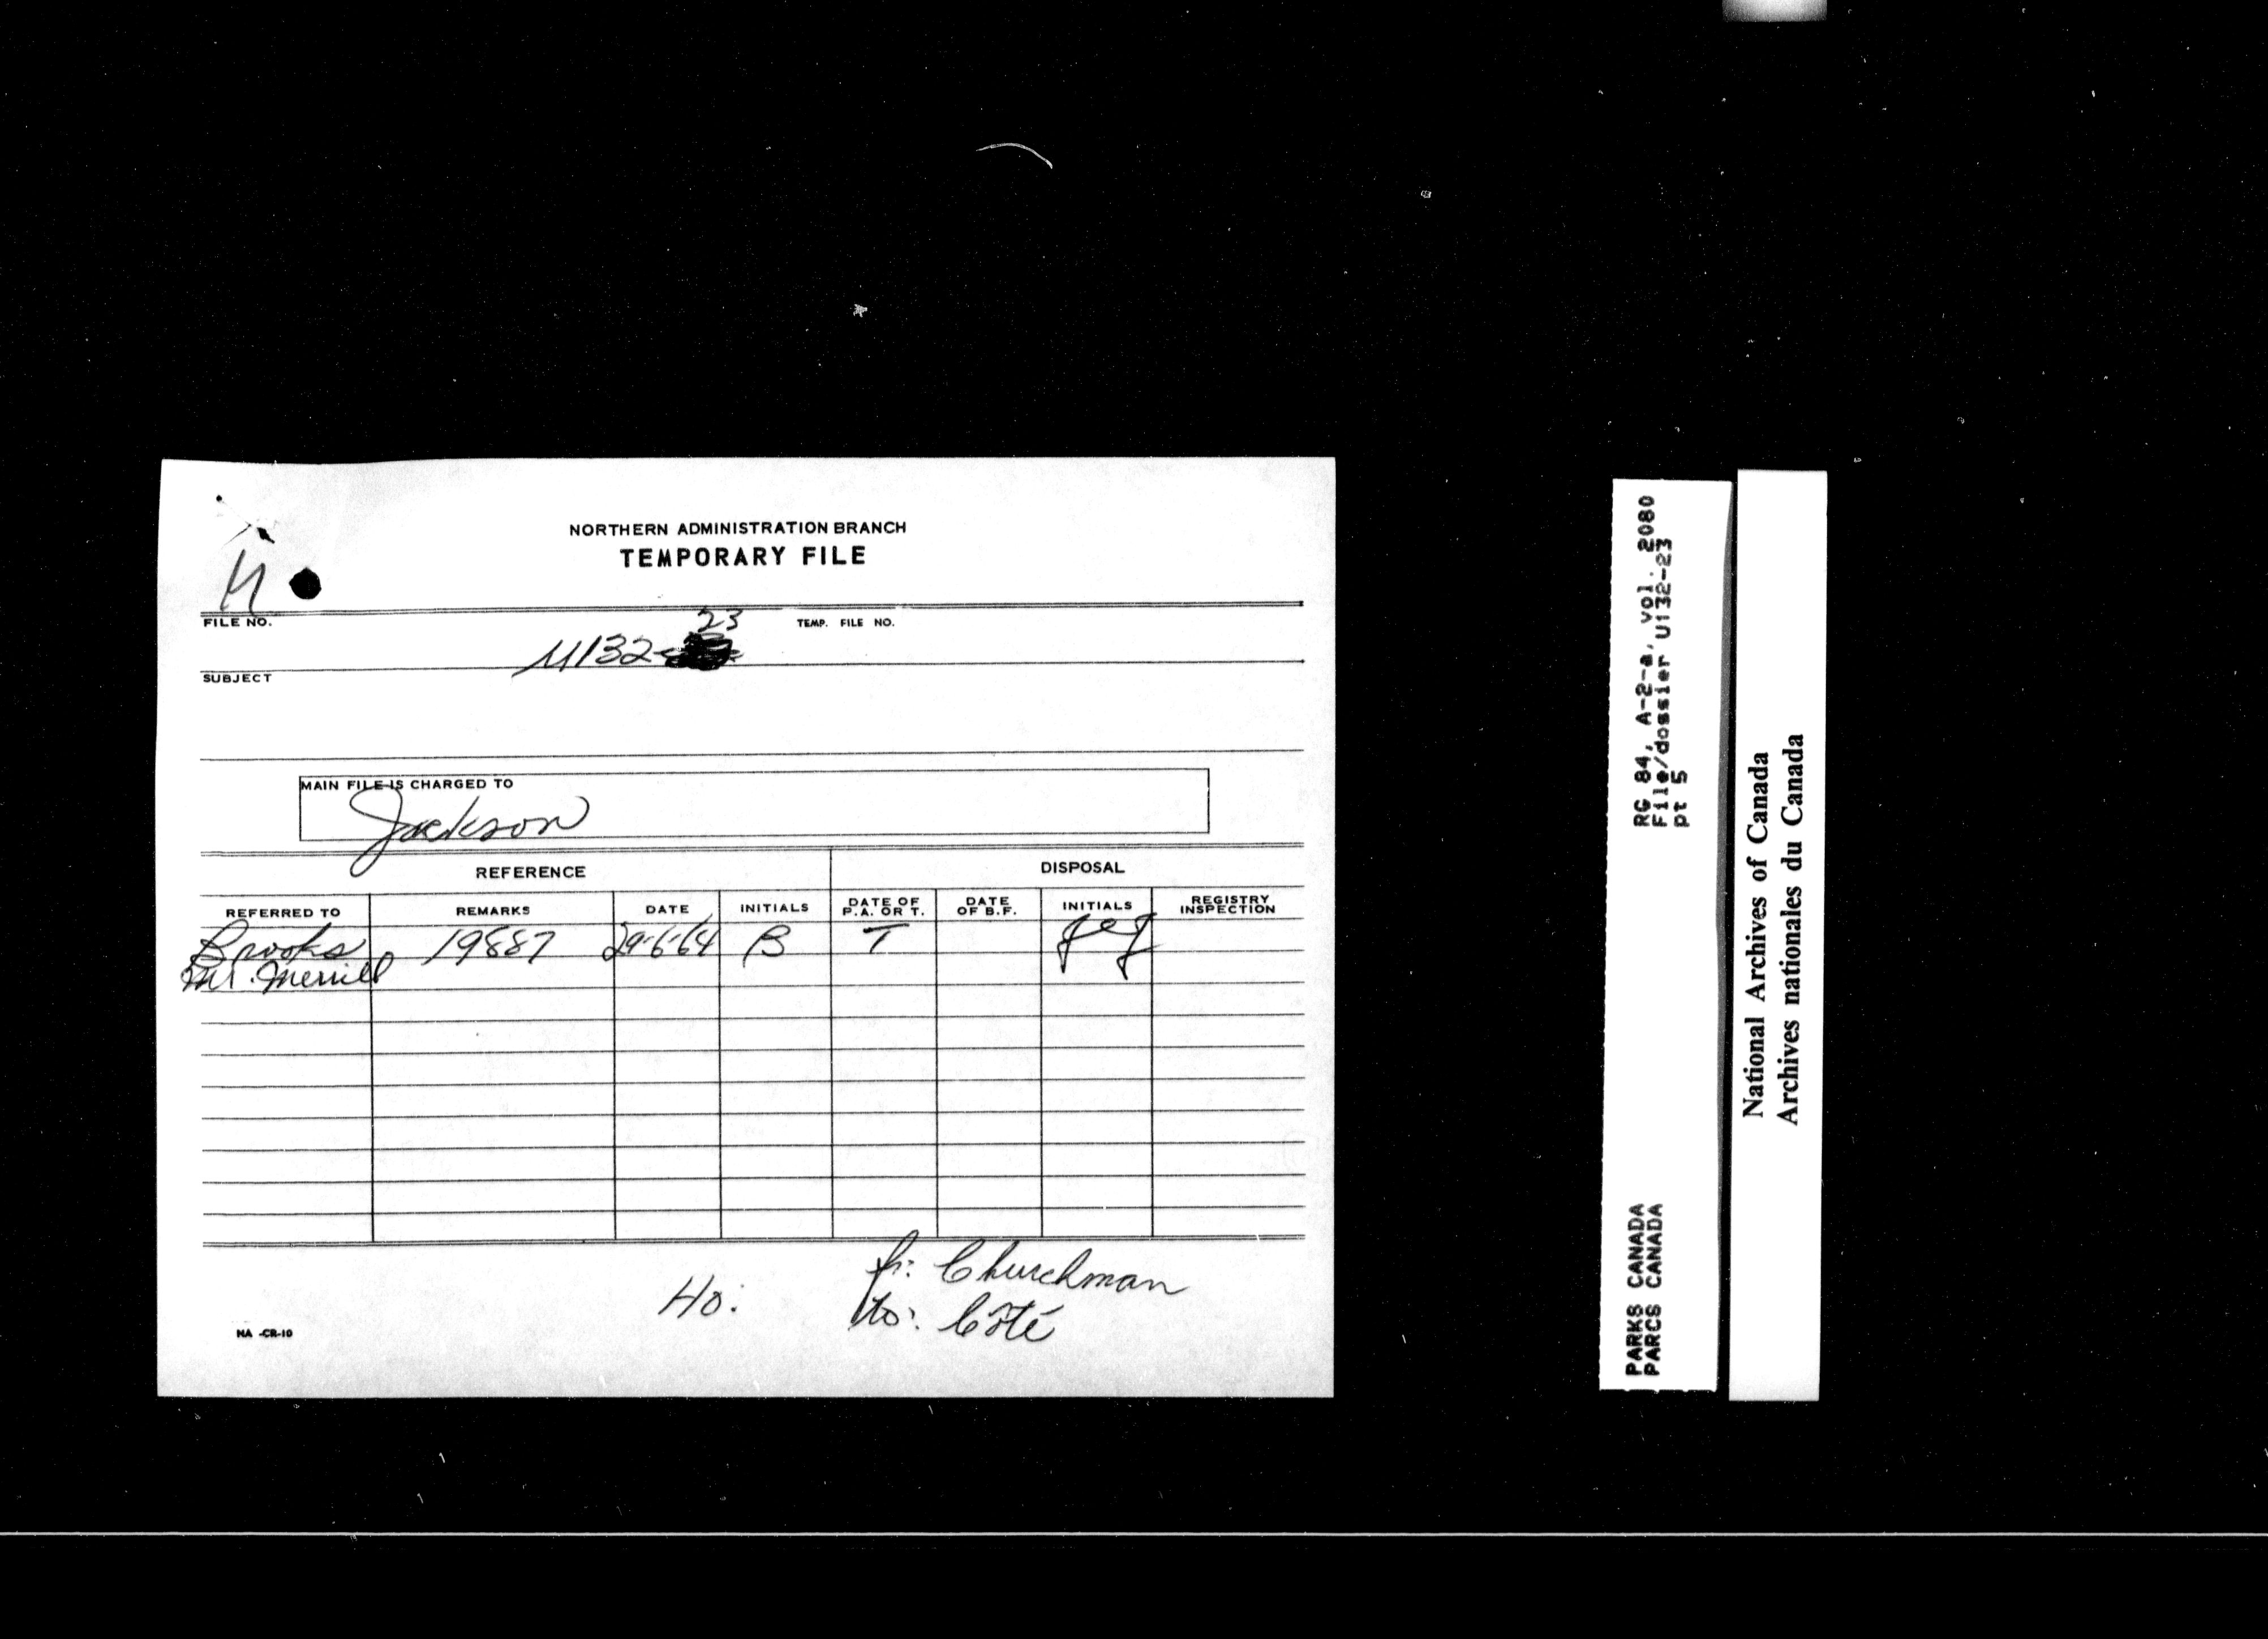 NORTHERN ADMINISTRATION BRANCH
TEMPORARY FILE
FILE NO.
U132-23
TEMP. FILE NO.
SUBJECT
MAIN FILE IS CHARGED TO
Jackson
REFERENCE
DISPOSAL
REFERRED TO REMARKS DATE INITIALS DATE OF P.A. OR T. DATE OF B.F. INITIALS REGISTRY INSPECTION
Brooks 19887 29-6-64 B T
Mr. Merrill
fr: Churchman
to: Côté
NA -CR-10
RG 84, A-2-a, vol. 2080
File/dossier U132-23
pt 5
PARKS CANADA
PARCS CANADA
National Archives of Canada
Archives nationales du Canada